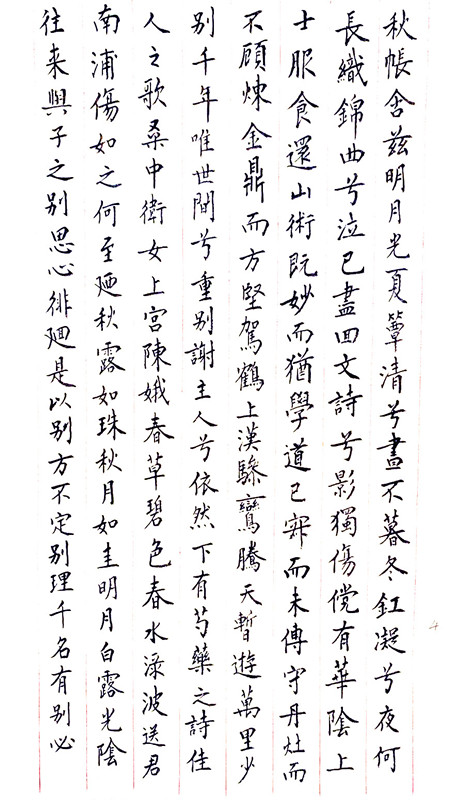 秋帳含兹明月光夏簟清兮晝不暮冬釭凝兮夜何
長織錦曲兮泣已盡回文詩兮影獨傷傥有華陰上
士服食還山術既妙而猶學道已寂而未傳守丹灶而
不顧煉金鼎而方堅駕鶴上漢驂鸞騰天暫遊萬里少
别千年唯世間兮重别謝主人兮依然下有芍藥之詩佳
人之歌桑中衛女上宫陳娥春草碧色春水渌波送君
南浦傷如之何至廼秋露如珠秋月如圭明月白露光陰
往来與子之别思心徘廻是以别方不定别理千名有别必